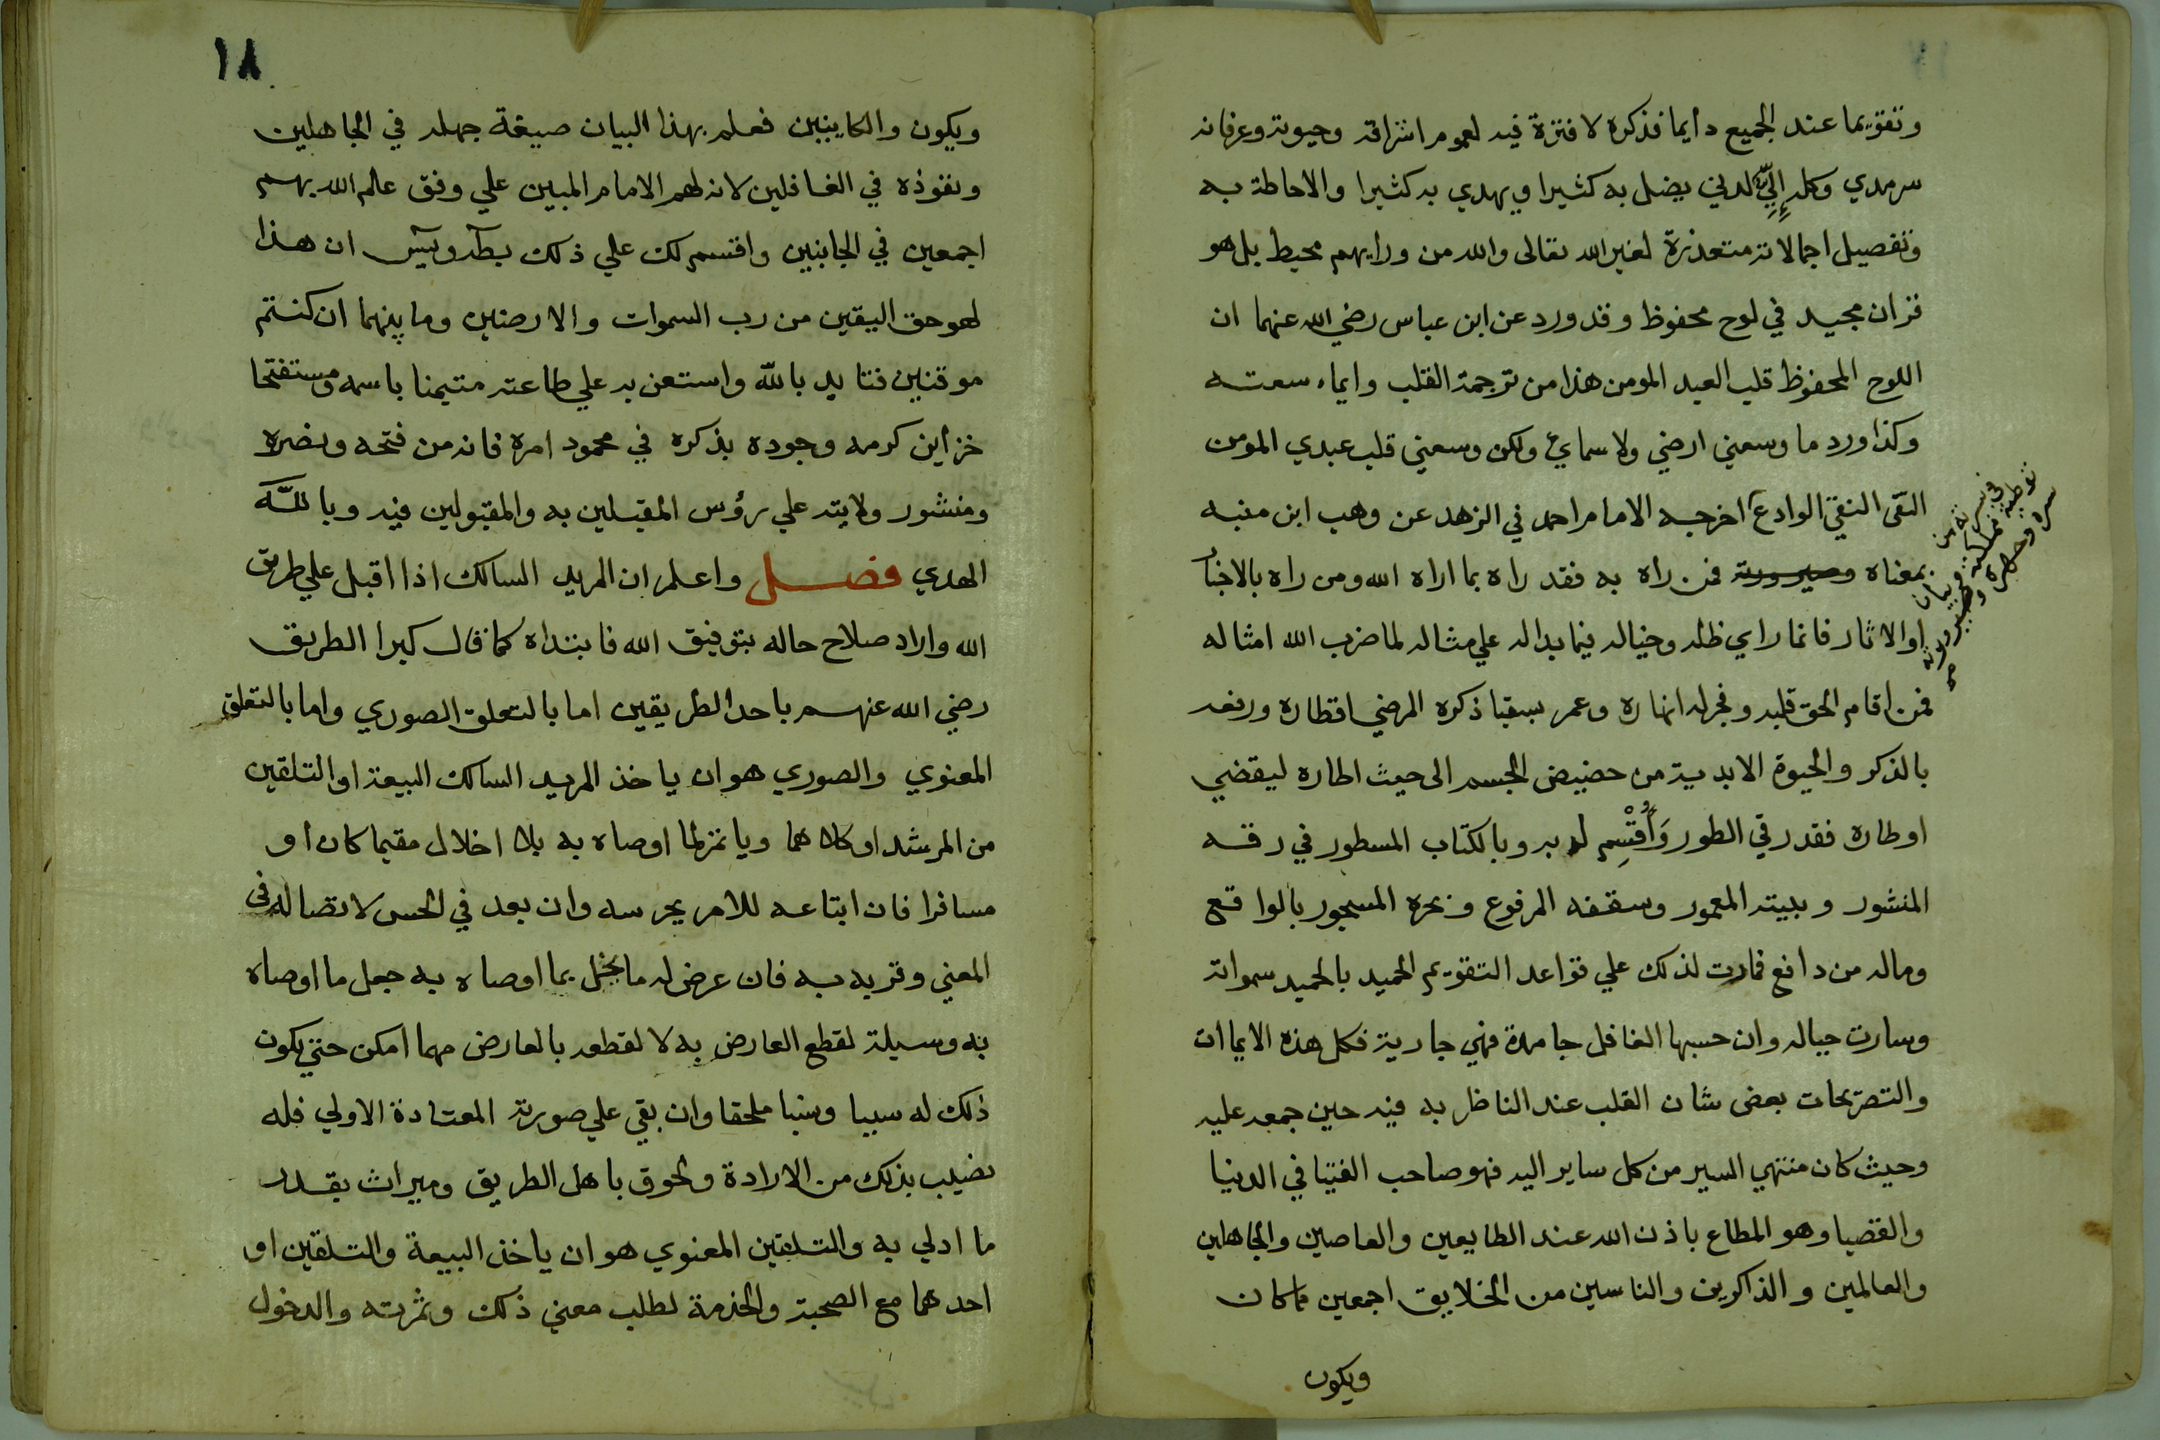 وتقويما عند الجميع دايما فذكره لا فترة فيه لعموم اشراقه وحيوته وعرفانه
سرمدي وكله إليّ لدني يضل به كثيرا ويهدي به كثيرا والاحاطة به
وتفصيل اجمالاته متعذرة لغير الله تعالى والله من ورايهم محيط بل هو
قران مجيد في لوح محفوظ وقد ورد عن ابن عباس رضي الله عنهما ان
اللوح المحفوظ قلب العبد المومن هذا من ترجمة القلب وايماء سعته
وكذا ورد ما وسعني ارضي ولا سماي ولكن وسعني قلب عبدي المومن
التقى النقي الوادع اخرجه الامام احمد في الزهد عن وهب ابن منبه
بمعناه فمن راه به فقد راه بما اراه الله ومن راه بالاخبار
او الاثار فانما راي ظله وخياله فيما بدا له علي مثاله لما ضرب الله امثاله
فمن اقام الحق قلبه وفجر له انهاره وعمر بسقيا ذكره المرضي اقطاره ورفعه
بالذكر والحيوة الابدية من حضيض الجسم الى حيث اطاره ليقضي
اوطاره فقد رقي الطور وَأُقْسِم له به وبالكتاب المسطور في رقه
المنشور وبيته المعمور وسقفه المرفوع وبحره المسجور بالواقع
وماله من دافع فمارت لذلك علي قواعد التقويم الحميد بالحميد سمواته
وسارت جباله وان حسبها الغافل جامدة فهي جارية فكل هذه الايماات
والتصريحات بعض شان القلب عند الناظر به فيه حين جمعه عليه
وحيث كان منتهي السير من كل ساير اليه فهو صاحب الفتيا في الدنيا
والقضيا وهو المطاع باذن الله عند الطايعين والعاصين والجاهلين
والعالمين والذاكرين والناسين من الخلايق اجمعين ما كان
ويكون
١٨
ويكون والكاينين فعلم بهذا البيان صيغة جهله في الجاهلين
ونفوذه في الغافلين لانه لهم الامام المبين علي وفق علم الله بهم
اجمعين في الجانبين واقسم لك علي ذلك بطه ويس ان هذا
لهو حق اليقين من رب السموات والارضين وما بينهما ان كنتم
موقنين فتايد بالله واستعن به علي طاعته متيمنا باسمه ومستفتحا
خزاين كرمه وجوده بذكره في محمود امره فانه من فتحه ونصره
ومنشور ولايته علي رؤس المقبلين به والمقبولين فيه وبالله
الهدي فصل واعلم ان المريد السالك اذا اقبل علي طريق
الله واراد صلاح حاله بتوفيق الله فابتداه كما قال كبرا الطريق
رضي الله عنهم باحد الطريقين اما بالتعلق الصوري واما بالتعلق
المعنوي والصوري هو ان ياخذ المريد السالك البيعة او التلقين
من المرشد او كلاهما وياتمر لما اوصاه به بلا اخلال مقيما كان او
مسافرا فان اتباعه للامر يحرسه وان بعد في الحس لاتصاله في
المعني وقربه به فان عرض له ما يخل بما اوصاه به جعل ما اوصاه
به وسيلة لقطع العارض به لا لقطعه بالعارض مهما امكن حتي يكون
ذلك له سببا ونسبا ملحقا وان بقي علي صورته المعتادة الاولي فله
نصيب بذلك من الارادة ولحوق باهل الطريق وميراث بقدر
ما ادلي به والتلقين المعنوي هو ان ياخذ البيعة والتلقين او
احدهما مع الصحبة والخدمة لطلب معني ذلك وثمرته والدخول